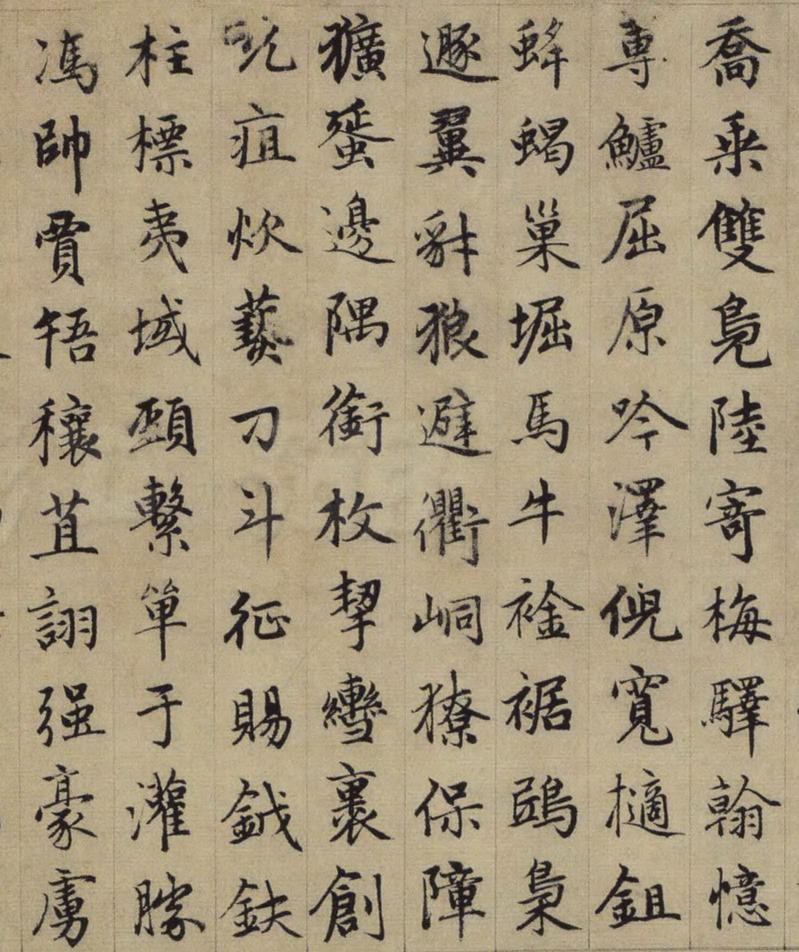 喬乘雙鳧陸寄梅驛翰憶
專鱸屈原吟澤倪寬擿鉏
蜂蝎巢堀馬牛襘裾鴟梟
遯翼豺狼避衢峒獠保障
獷蜑邊隅銜枚挈轡裹創
疽炊爇刀斗征賜鉞鈇
柱標夷域頤繫單于灌滕
馮帥賈牾穰苴詡强豪虜